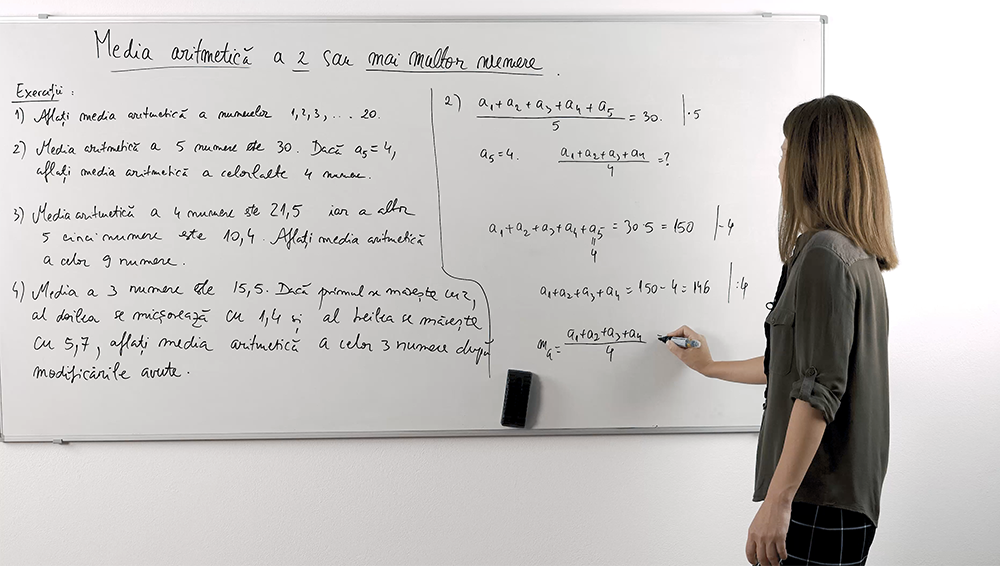 Media aritmetică a 2 sau mai multor numere.
Exerciții:
1) Aflați media aritmetică a numerelor 1, 2, 3, ... 20.
2) Media aritmetică a 5 numere este 30. Dacă a₅ = 4,
aflați media aritmetică a celorlalte 4 numere.
3) Media aritmetică a 4 numere este 21,5 iar a altor
5 cinci numere este 10,4. Aflați media aritmetică
a celor 9 numere.
4) Media a 3 numere este 15,5. Dacă primul se mărește cu 2,
al doilea se micșorează cu 1,4 și al treilea se mărește
cu 5,7, aflați media aritmetică a celor 3 numere după
modificările avute.
2) (a₁ + a₂ + a₃ + a₄ + a₅)/5 = 30. | · 5
a₅ = 4. (a₁ + a₂ + a₃ + a₄)/4 = ?
a₁ + a₂ + a₃ + a₄ + a₅ = 30·5 = 150 | - 4
=
4
a₁ + a₂ + a₃ + a₄ = 150 - 4 = 146 | : 4
mₐ = (a₁ + a₂ + a₃ + a₄)/4 =